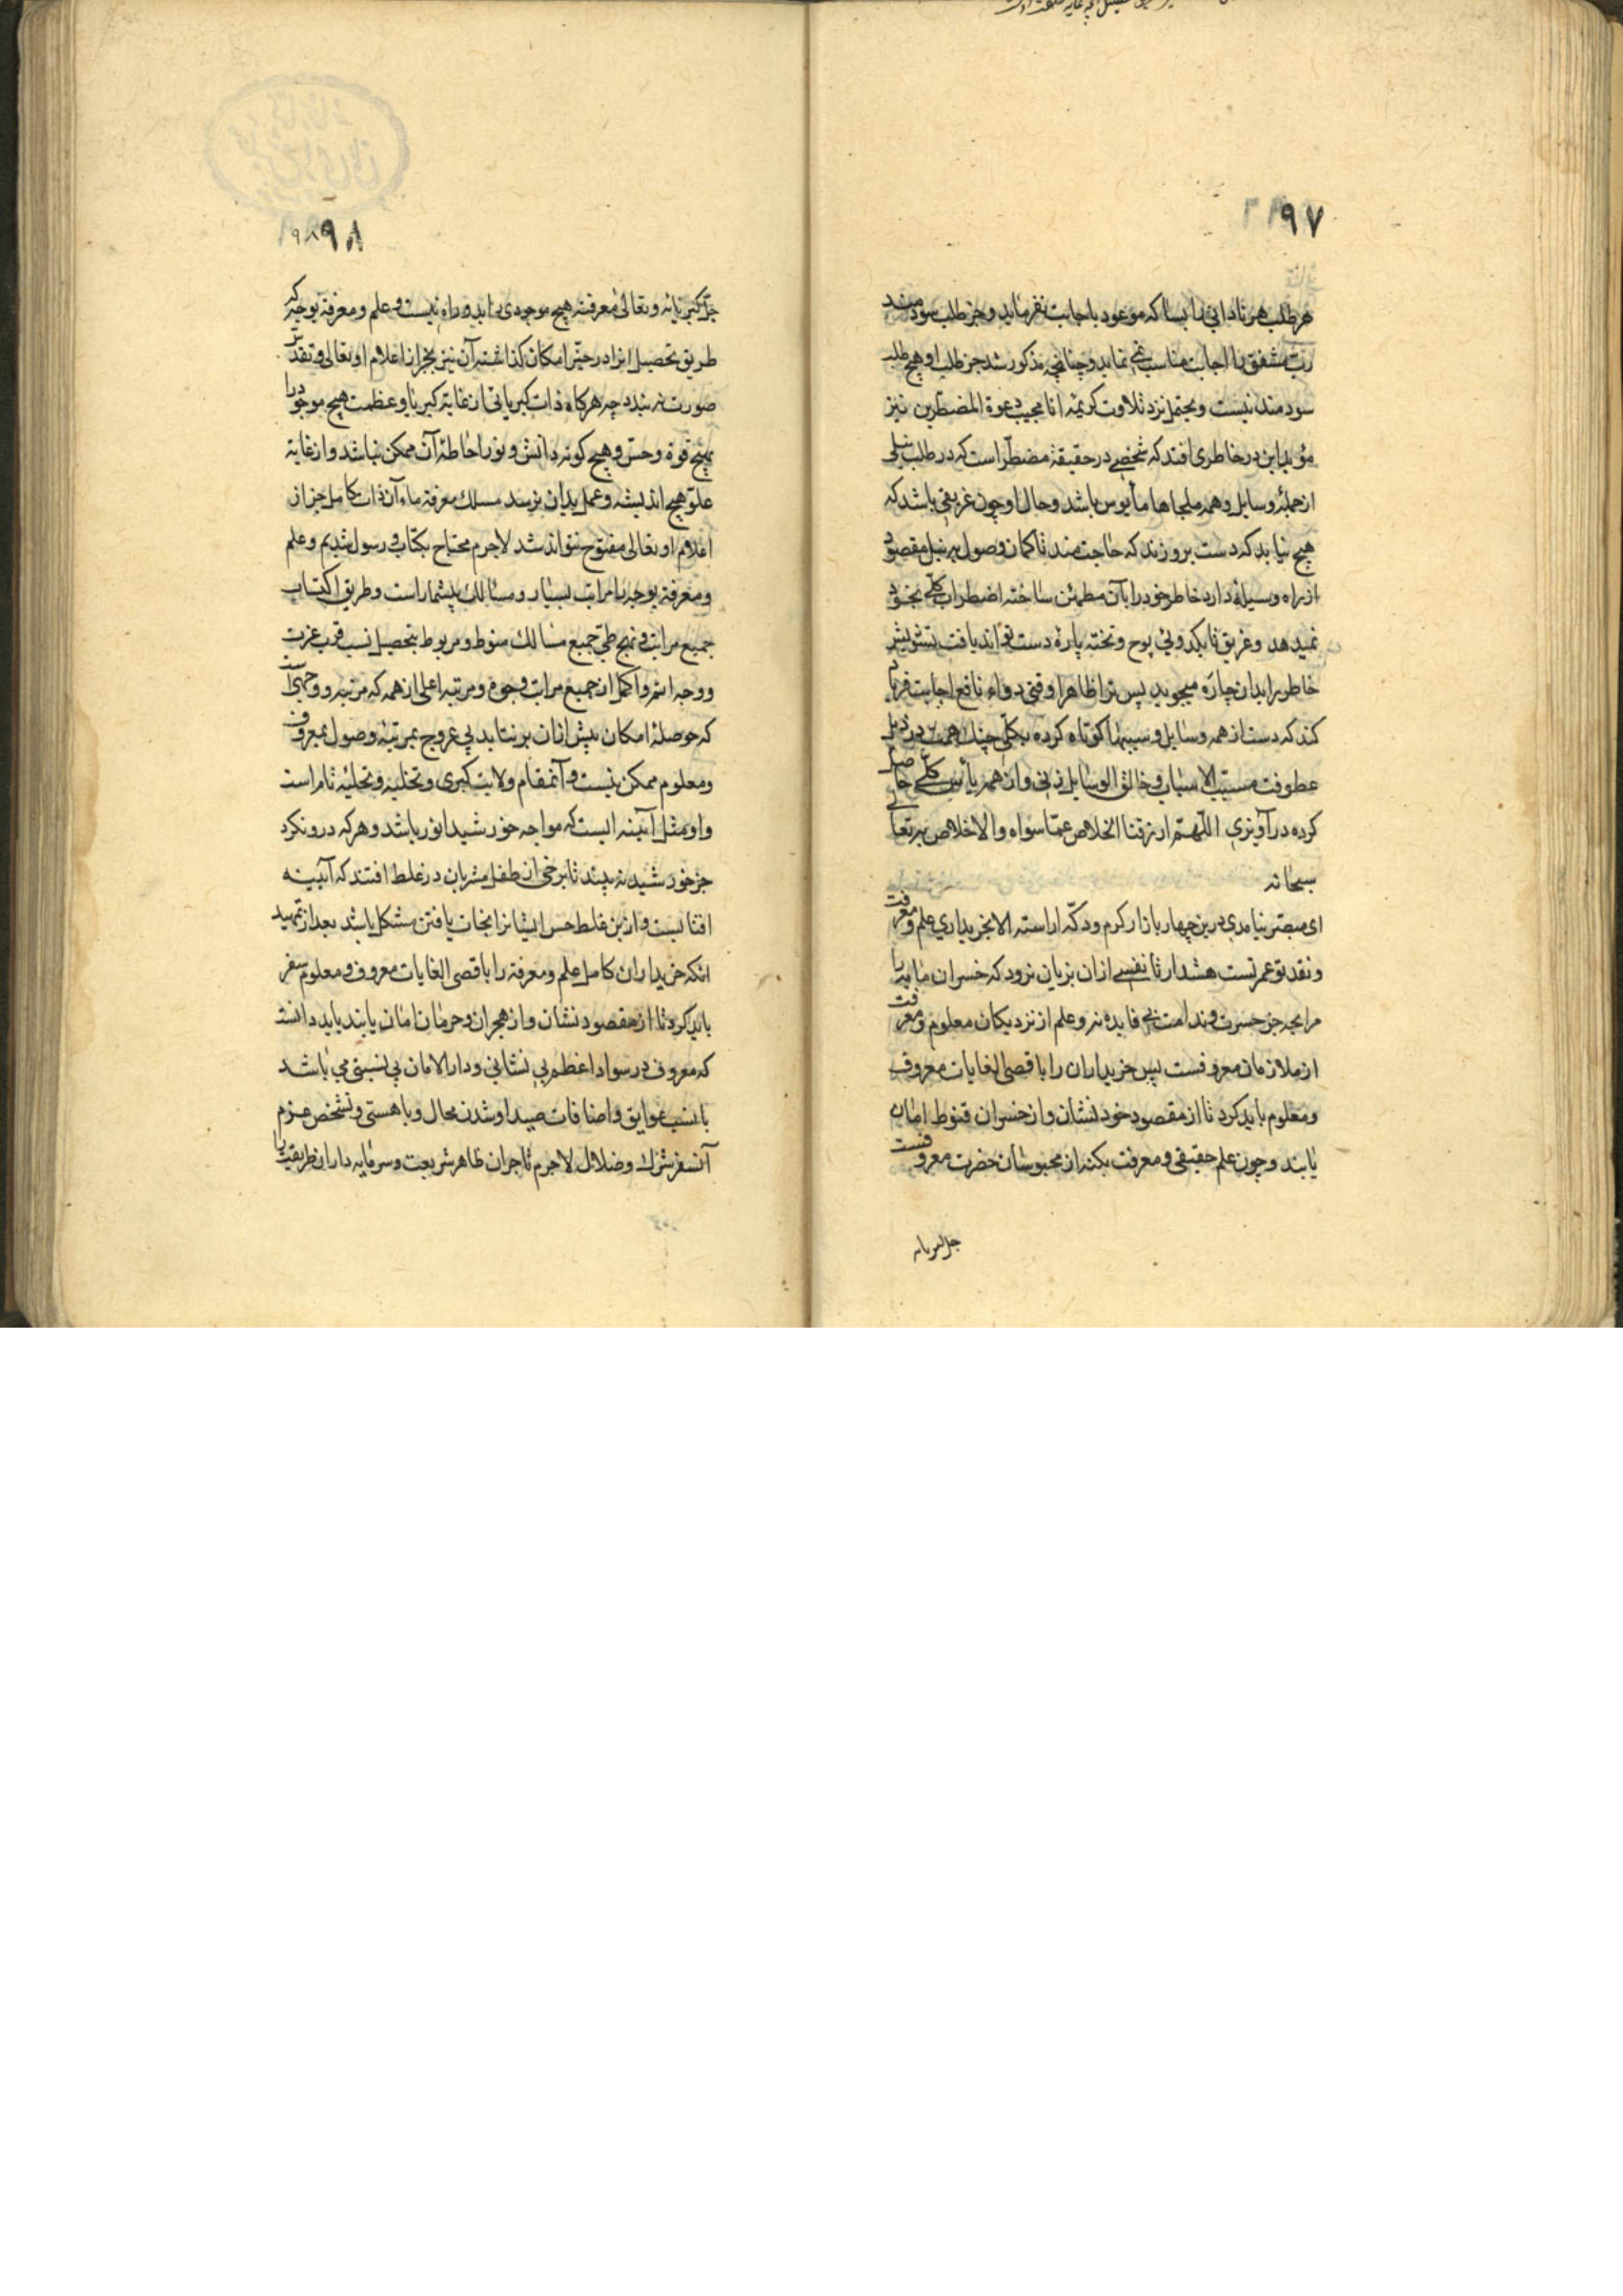 ۹۷
هر طلب هر نادانی را بسا که موعود باجابت نفرماید و جز طلب سودمند
رب مشفق را اجابت مناسب نمی نماید و چنانچه مذکور شد جز طلب او هیچ طلب
سودمند نیست و یحتمل نزد تلاوت کریمه انا مجیب دعوة المضطرین نیز
مؤید این در خاطر می افتد که شخصی در حقیقة مضطر است که در طلب نیلی
از جملهٔ وسایل و همه ملجاها مأیوس باشد و حال او چون غریقی باشد که
هیچ نیابد که دست برو زند که حاجتمند تا کمان وصول به نیل مقصود
از راه وسیلهٔ دارد خاطر خود را بآن مطمئن ساخته اضطراب کلی بخود
نمیدهد و غریق تا بکدوئی پوح و تخته پارهٔ دست تواند یافت تشویش
خاطر را بدان چاره میجوید پس ترا ظاهرا وقتی دواء نافع اجابت فرام
کند که دست از همه وسایل و سببها کوتاه کرده بکلی چنك همت در ذیل
عطوفت مسبب الاسباب و خالق الوسایل زنی و از همه یأس کلی حاصل
کرده درآویزی اللهم ارزقنا الخلاص عما سواه والاخلاص به تعالی
سبحانه
ای مبصر نیامدی درین چهار بازار کرم و دکه اراسته الا بخریداری علم و معرفت
و نقد تو عمر تست هشدار تا نفسی از ان بزیان نرود که خسران مایه را
مرابحه جز حسرت و ندامت بی فایده نه و علم از نزدیکان معلوم و معرفت
از ملازمان معروفست پس خریداران را باقصی الغایات معروف
و معلوم باید کرد تا از مقصود خود نشان و از خسران قنوط امان
یابند و چون علم حقیقی و معرفت بکنه از محبوسان حضرت معروفست
جل کبریائه
۹۸
جل کبریائه و تعالی معرفته هیچ موجودی را بدو راه نیست و علم و معرفة بوجه که
طریق تحصیل انرا در حیز امکان گذاشته آن نیز بجز از اعلام او تعالی و تقدس
صورت نه بندد چه هرکاه ذات کبریائی از غایة کبریا و عظمت هیچ موجود را
بهیچ قوة و حس و هیچ کونه دانش و نور احاطهٔ آن ممکن نباشد و از غایة
علو هیچ اندیشه و عمل بدان نرسد مسلك معرفة ماء آن ذات کامل جز از
اعلام او تعالی مفتوح نتواند شد لاجرم محتاج بکتاب و رسول شدیم و علم
و معرفة بوجه را مراتب بسیار و مسالك بیشمار است و طریق اکتساب
جمیع مراتب و نهج طی جمیع مسالك منوط و مربوط بتحصیل نسب قرب عزت
و وجه اتم و اکمل از جمیع مراتب وجوه و مرتبه اعلی از همه که مرتبه و وجهی است
که حوصلهٔ امکان بیش از ان برنتابد بی عروج بمرتبهٔ وصول بمعروف
و معلوم ممکن نیست و آنمقام ولایت کبری و تخلیه و تحلیهٔ تام است
و او مثل آیینه ایست که مواجه خورشید انور باشد و هر که درو نکرد
جز خورشید نه بیند تا برخی از طفل مشربان در غلط افتند که آیینه
افتابیست و از بن غلط حس ایشانرا نجات یافتن مشکل باشد بعد از تمهید
انکه خریداران کامل علم و معرفة را باقصی الغایات معروف و معلوم سفر
باید کرد تا از مقصود نشان و از هجران و حرمان امان یابند باید دانست
که معروف در سواد اعظم بی نشانی و دار الامان بی نسبتی می باشد
با نسب عوایق و اضافات صید او شدن محال و با هستی و تشخص عزم
آنسفر شرك و ضلال لاجرم تاجران ظاهر شریعت و سرمایه داران طریقت را